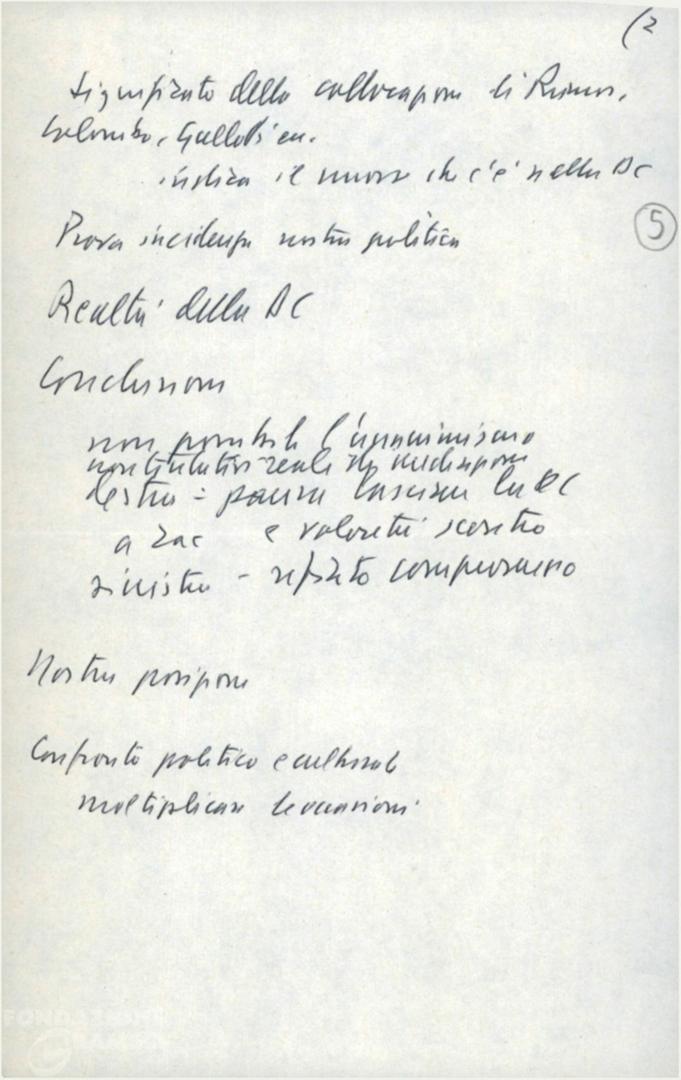 (2
Significato della collocazione di Rumor,
Colombo, Gullotti ecc.
indica il nuovo che c'è nella DC
5
Prova incidenza nostra politica
Realtà della DC
Conclusioni
non possibile l'unanimismo
non tentativi reali di mediazione
destra - paura lasciare la DC
a Zac e volontà scontro
sinistra - rifiuto compromesso
Nostra posizione
Confronto politico e culturale
moltiplicare le occasioni
FONDAZIONE